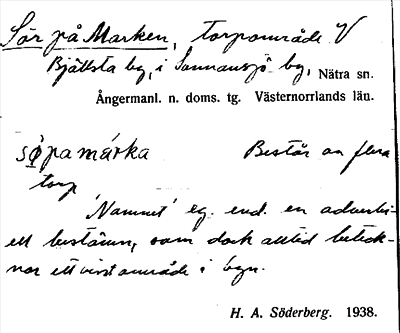 Sör på Marken, torpområde V
Bjällsta by, i Sunnansjö by, Nätra sn.
Ångermanl. n. doms. tg. Västernorrlands län.
sø̀pamárka Består av flera
torp
'Namnet' eg. end. en adverbi-
ell bestämn, som dock alltid beteck-
nar ett visst område i byn.
H. A. Söderberg. 1938.